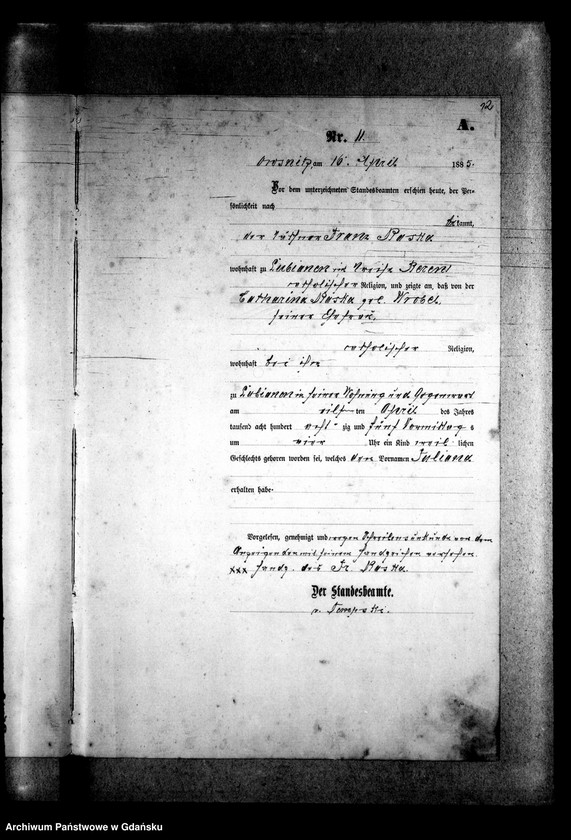 12
A.
Nr. 11.
am 16. April 1885.
Vor dem unterzeichneten Standesbeamten erschien heute, der Per-
sönlichkeit nach
bekannt,
der Franz Raska
wohnhaft zu Lubianen im Kreise Berent
catholischer Religion, und zeigte an, daß von der
Catharina Raska geb. Wrobel,
seiner Ehefrau,
catholischer Religion,
wohnhaft bei ihm
zu Lubianen in seiner Wohnung und Gegenwart
am elften April des Jahres
tausend acht hundert achtzig und fünf Vormittags
um vier Uhr ein Kind weiblichen
Geschlechts geboren worden sei, welches den Vornamen Juliana
erhalten habe.
Vorgelesen, genehmigt und wegen Schreibensunkunde von dem
Anzeigenden mit seinem Handzeichen versehen.
xxx Handz. des Fr. Raska.
Der Standesbeamte.
v.
Archiwum Państwowe w Gdańsku